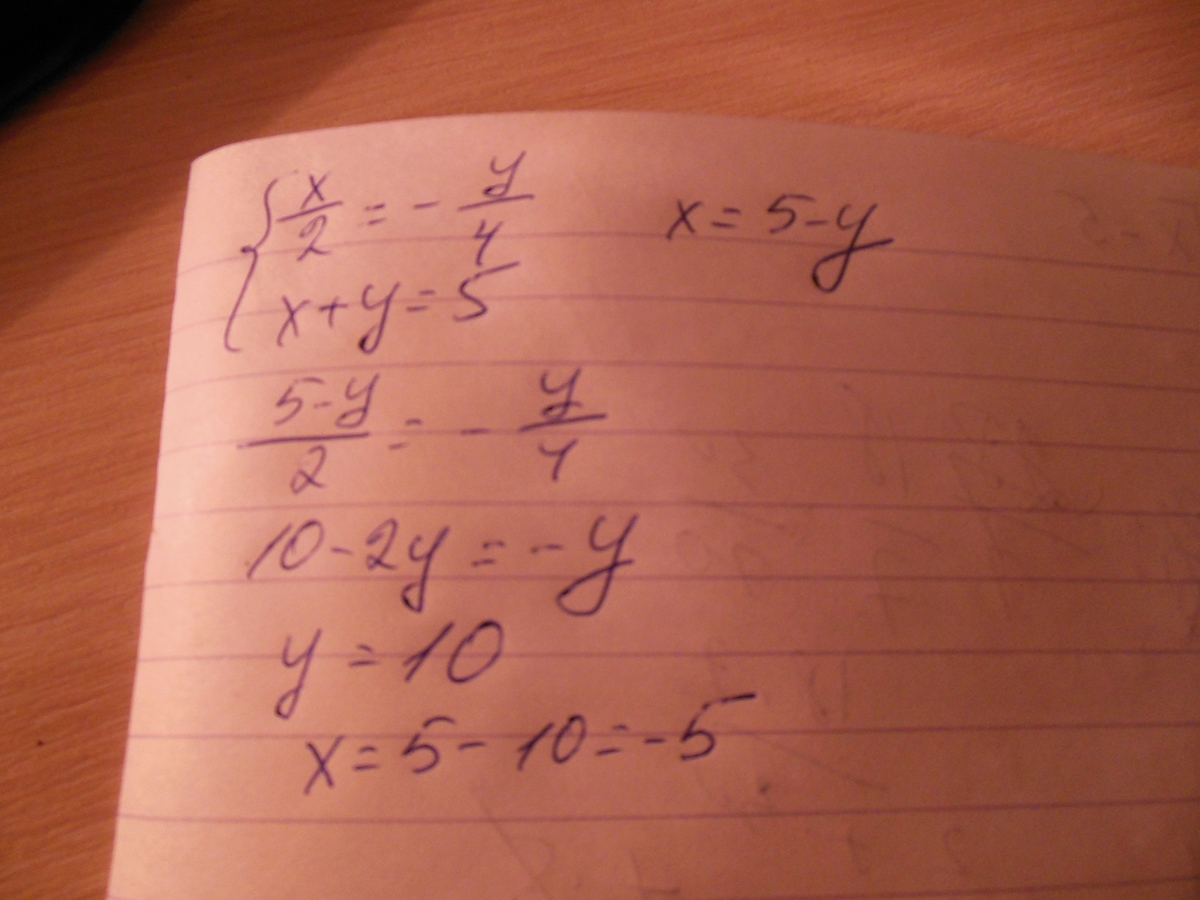 x/2 = - y/4
x = 5-y
x+y=5
5-y/2 = - y/4
10-2y = -y
y = 10
x = 5 - 10 = -5